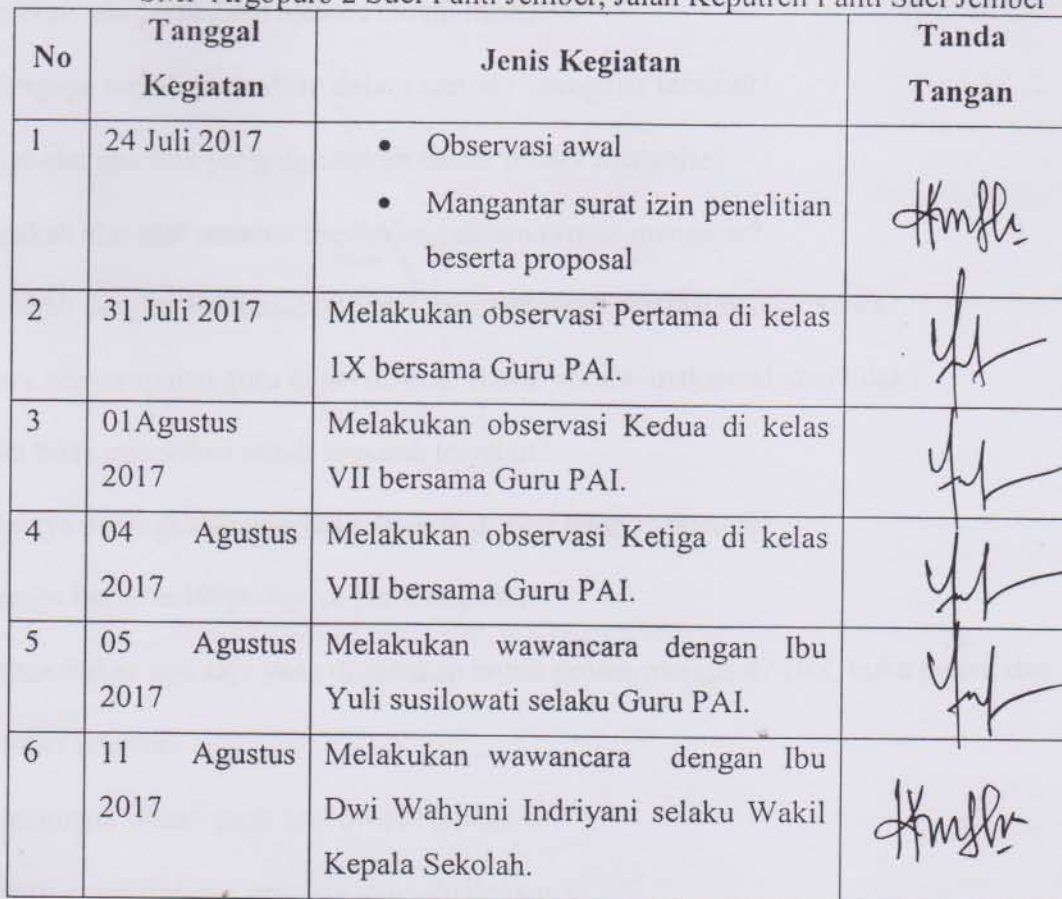 2 Suci Panti Jember, Jalan Keputren Panti Suci Jember
No
Tanggal
Kegiatan
Jenis Kegiatan
Tanda
Tangan
1
24 Juli 2017
• Observasi awal
• Mangantar surat izin penelitian
beserta proposal
2
31 Juli 2017
Melakukan observasi Pertama di kelas
1X bersama Guru PAI.
3
01Agustus
2017
Melakukan observasi Kedua di kelas
VII bersama Guru PAI.
4
04 Agustus
2017
Melakukan observasi Ketiga di kelas
VIII bersama Guru PAI.
5
05 Agustus
2017
Melakukan wawancara dengan Ibu
Yuli susilowati selaku Guru PAI.
6
11 Agustus
2017
Melakukan wawancara dengan Ibu
Dwi Wahyuni Indriyani selaku Wakil
Kepala Sekolah.